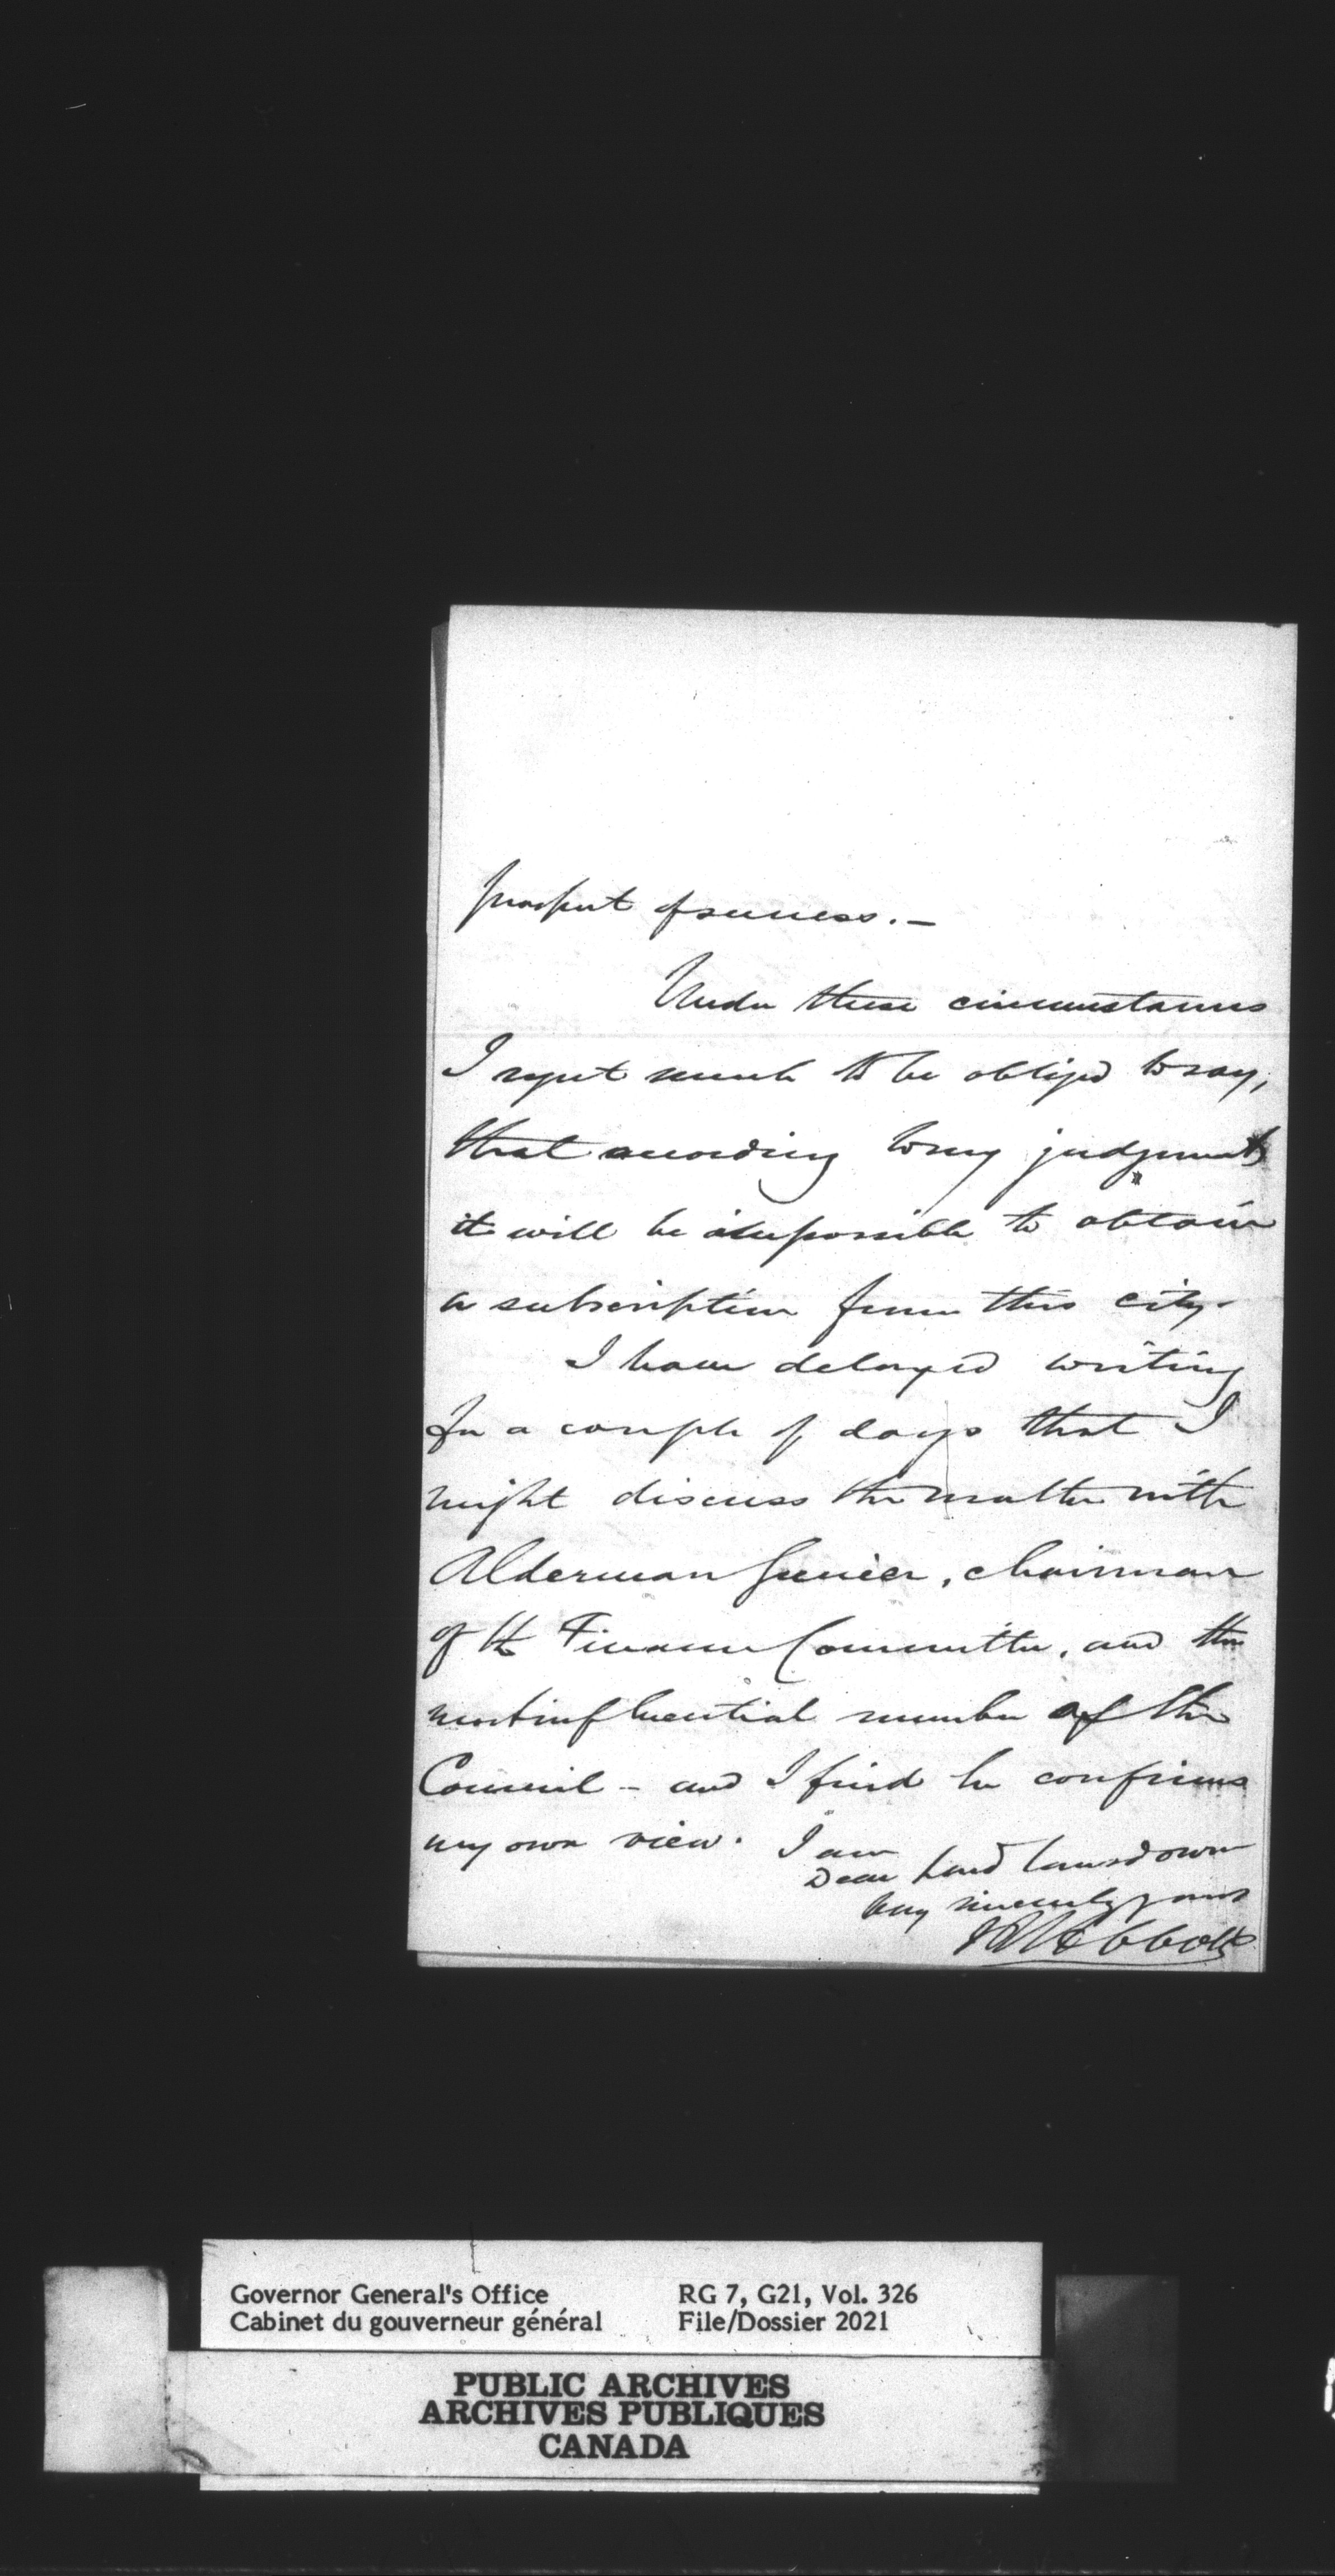 prospect of success. -
Under these circumstances
I regret much to be obliged to say,
that according to my judgment
it will be impossible to obtain
a subscription from this city.
I have delayed writing
for a couple of days that I
might discuss the matter with
Alderman Grenier, chairman
of the Finance Committee, and the
most influential member of the
Council - and I find he confirms
my own view. I am
Dear Lord Lansdowne
Very sincerely yours
JJC Abbott
Governor General's Office RG 7, G21, Vol. 326
Cabinet du gouverneur général File/Dossier 2021
PUBLIC ARCHIVES
ARCHIVES PUBLIQUES
CANADA